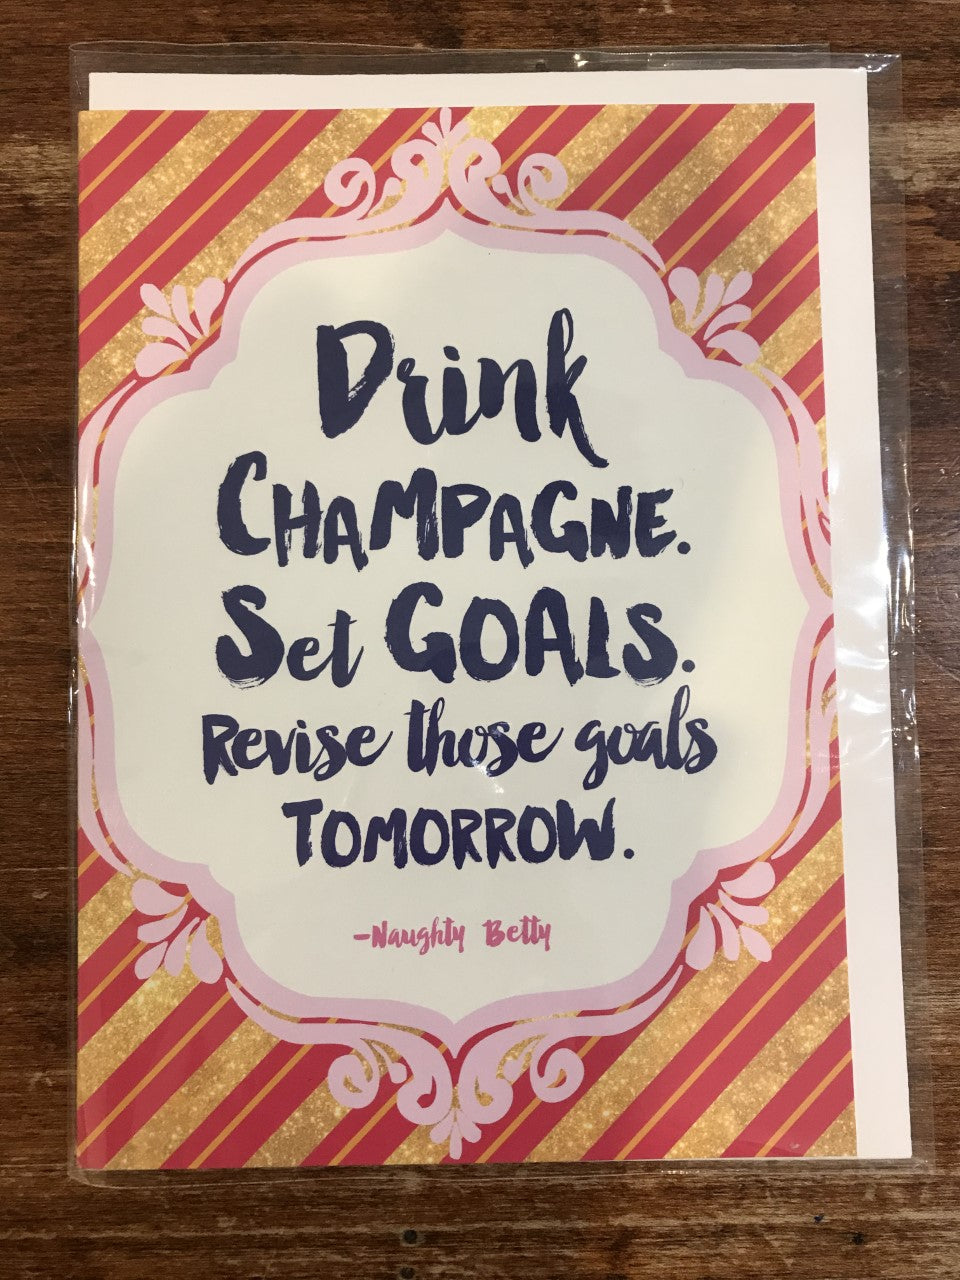 Drink
CHAMPAGNE.
Set GOALS.
Revise those goals
TOMORROW.
-Naughty Betty